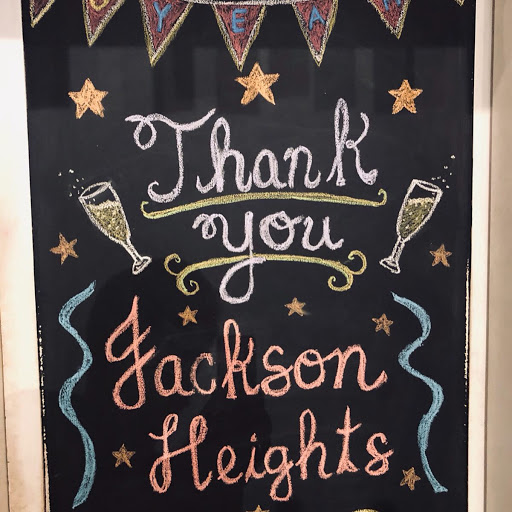 YEAR
Thank
you
Jackson
Heights